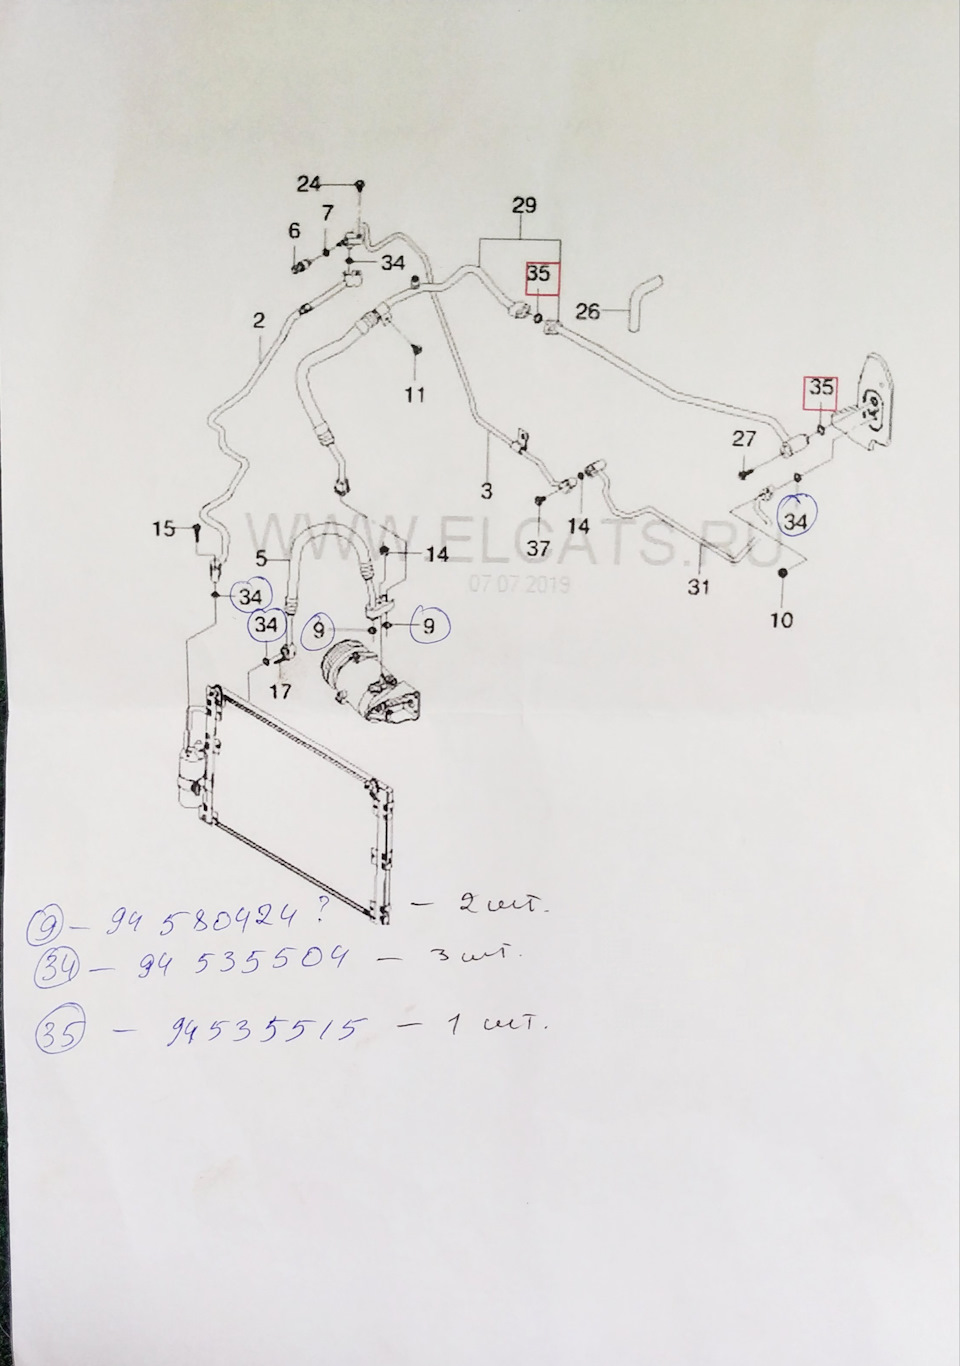 24
7
29
6
34
35
26
2
35
11
27
3
34
15
14
37
WWW.ELCATS.RU
5
14
07.07.2019
31
34
10
34
9
9
17
9 - 94 580424 ? - 2 шт.
34 - 94 535504 - 3 шт.
35 - 94535515 - 1 шт.